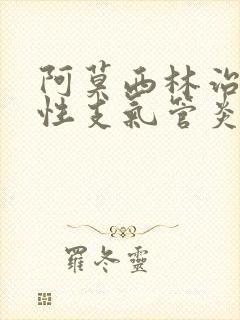 阿莫西林治
性支氣管炎
羅冬靈